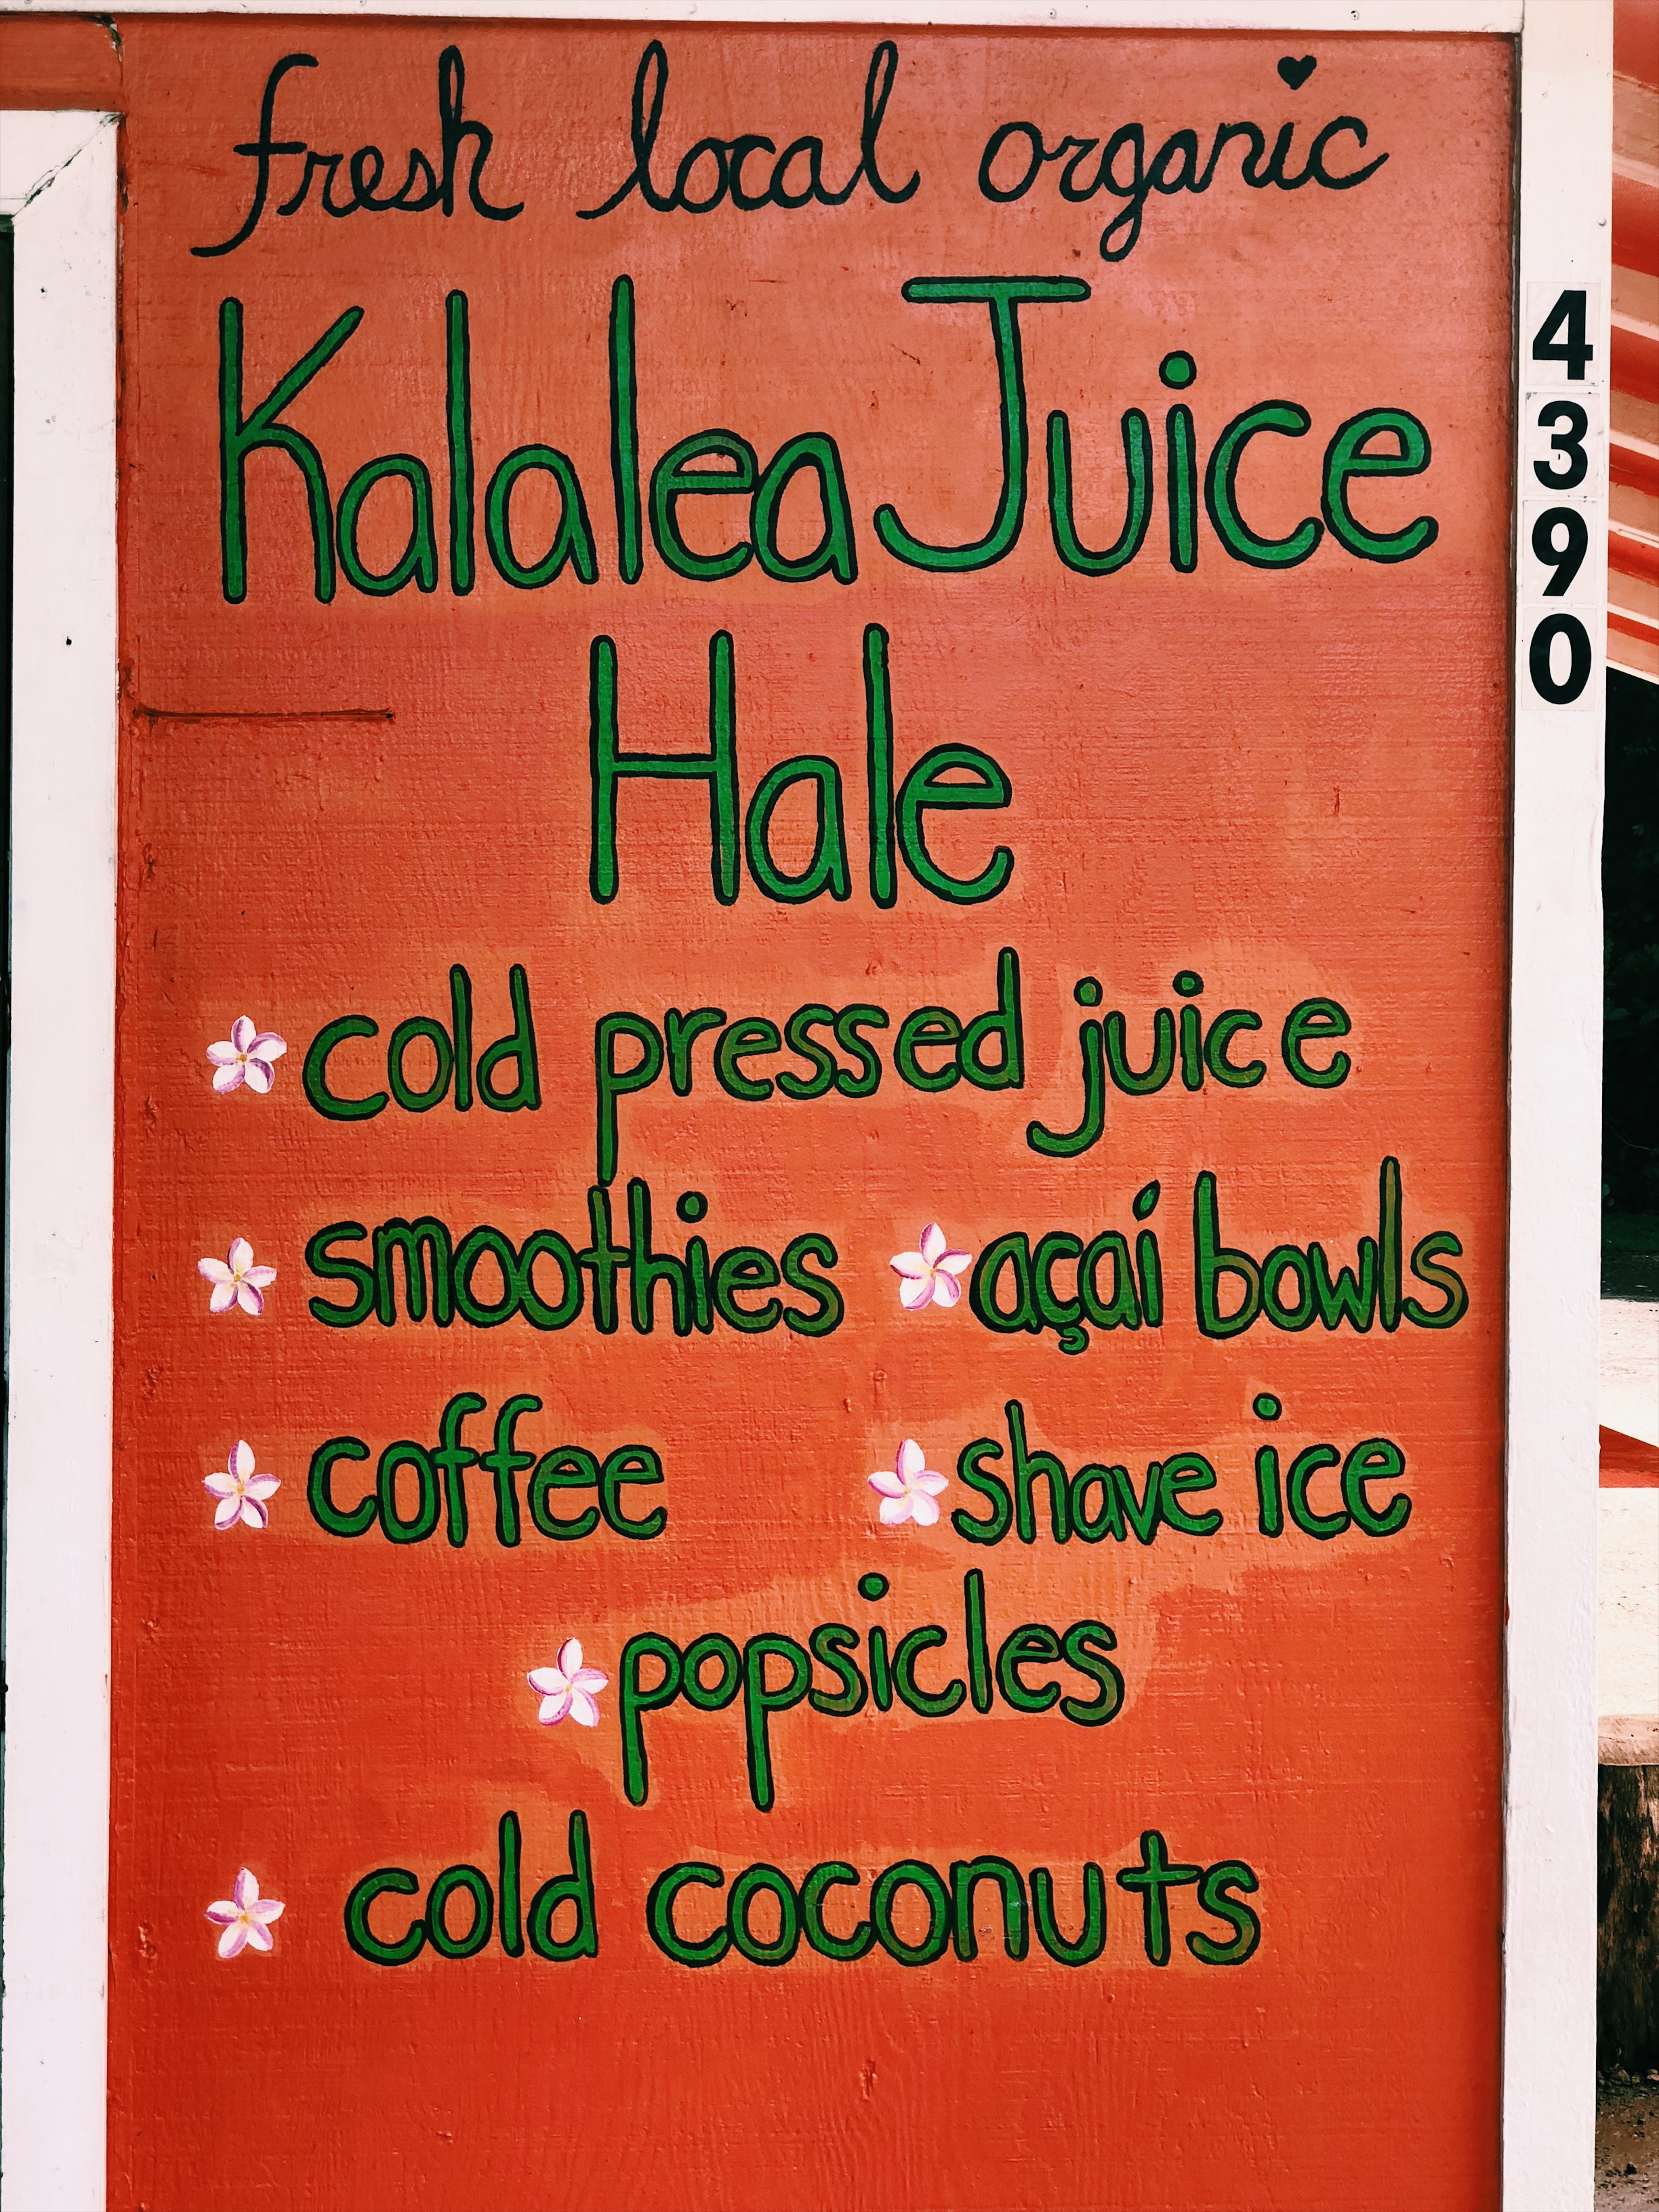 fresh local organic
Kalalea Juice
Hale
cold pressed juice
smoothies açaí bowls
coffee shave ice
popsicles
cold coconuts
4390